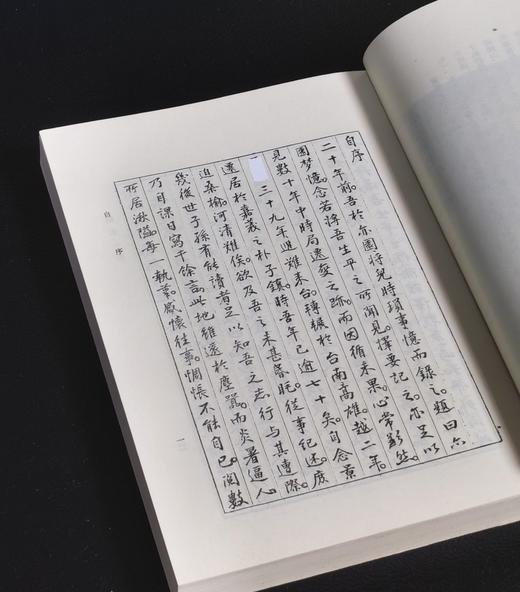 自序
二十年前。吾於亦園將兒時瑣事憶而錄之。題曰亦
園梦憶。念若將吾生平之所聞見。擇要記之。亦足以
見數十年中時局遷變之跡。而因循未果。心常歉然。
三十九年避難來台。轉輾於台南高雄。越二年。
遷居於嘉義之朴子鎮。時吾年已逾七十矣。自念景
迫桑榆。河清難俟。欲及吾之未甚昏眊。從事紀述。庶
幾後世子孫有能讀者。足以知吾之志行與其遭際。
乃自課日寫千餘言。此地雖遠於塵囂。而炎暑逼人。
所居湫隘。每一執筆。感懷往事。惆悵不能自已。閱數
自序
一